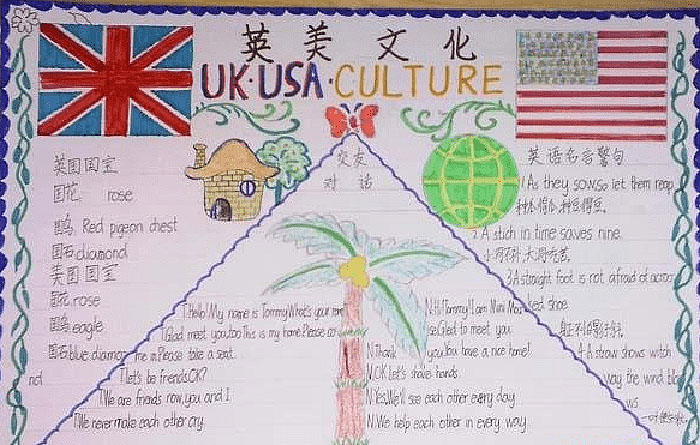 英美文化
UK·USA·CULTURE
英国国宝
国花 rose
国鸟 Red pigeon chest
国石 diamond
美国国宝
国花 rose
国鸟 eagle
国石 blue diamond
交友
对话
1Hello! My name is Tommy What's your name
1Glad meet you, too This is my home. Please come
me in. Please take a seat.
1Let's be friends.OK?
1We are friends now, you and I
1We never make each other cry.
N.Hi!Tommy! I am Mini Mou
se.Glad to meet you.
N.Thank you.You have a nice home!
N.OK Let's shake hands
N.Yes. We'll see each other every day
N.We help each other in every way.
英语名言警句
1 As they sow, so let them reap
种瓜得瓜,种豆得豆
2 A stich in time saves nine.
小洞不补,大洞吃苦.
3 A straight foot is not afraid of
ked shoe
身正不怕影子斜.
4 A straw shows witch
way the wind blo
ws
一叶知秋